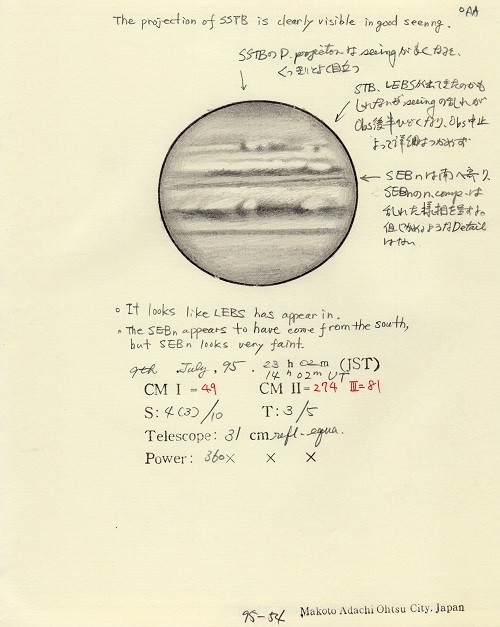 ○AA
The projection of SSTB is clearly visible in good seeing.
SSTBのP. projectionは seeingが良くなると、
くっきりとよく目立つ
STB、LEBSが出てきたのかも
しれないが seeingの乱れが
Obs後半ひどくなり、Obs中止
よって詳細はつかめず
SEBnは南へ寄り
SEBnのn.comp.は
乱れた様相を呈する。
Detail
はない
○ It looks like LEBS has appear in.
○ The SEBn appears to have come from the south,
but SEBn looks very faint.
9th July, 95. 23 h 02 m (JST)
14 h 02 m UT
CM I = 49 CM II = 274 III = 81
S: 4(3)/10 T: 3/5
Telescope: 31 cm refl-equa.
Power: 360× × ×
95-54 Makoto Adachi Ohtsu City, Japan